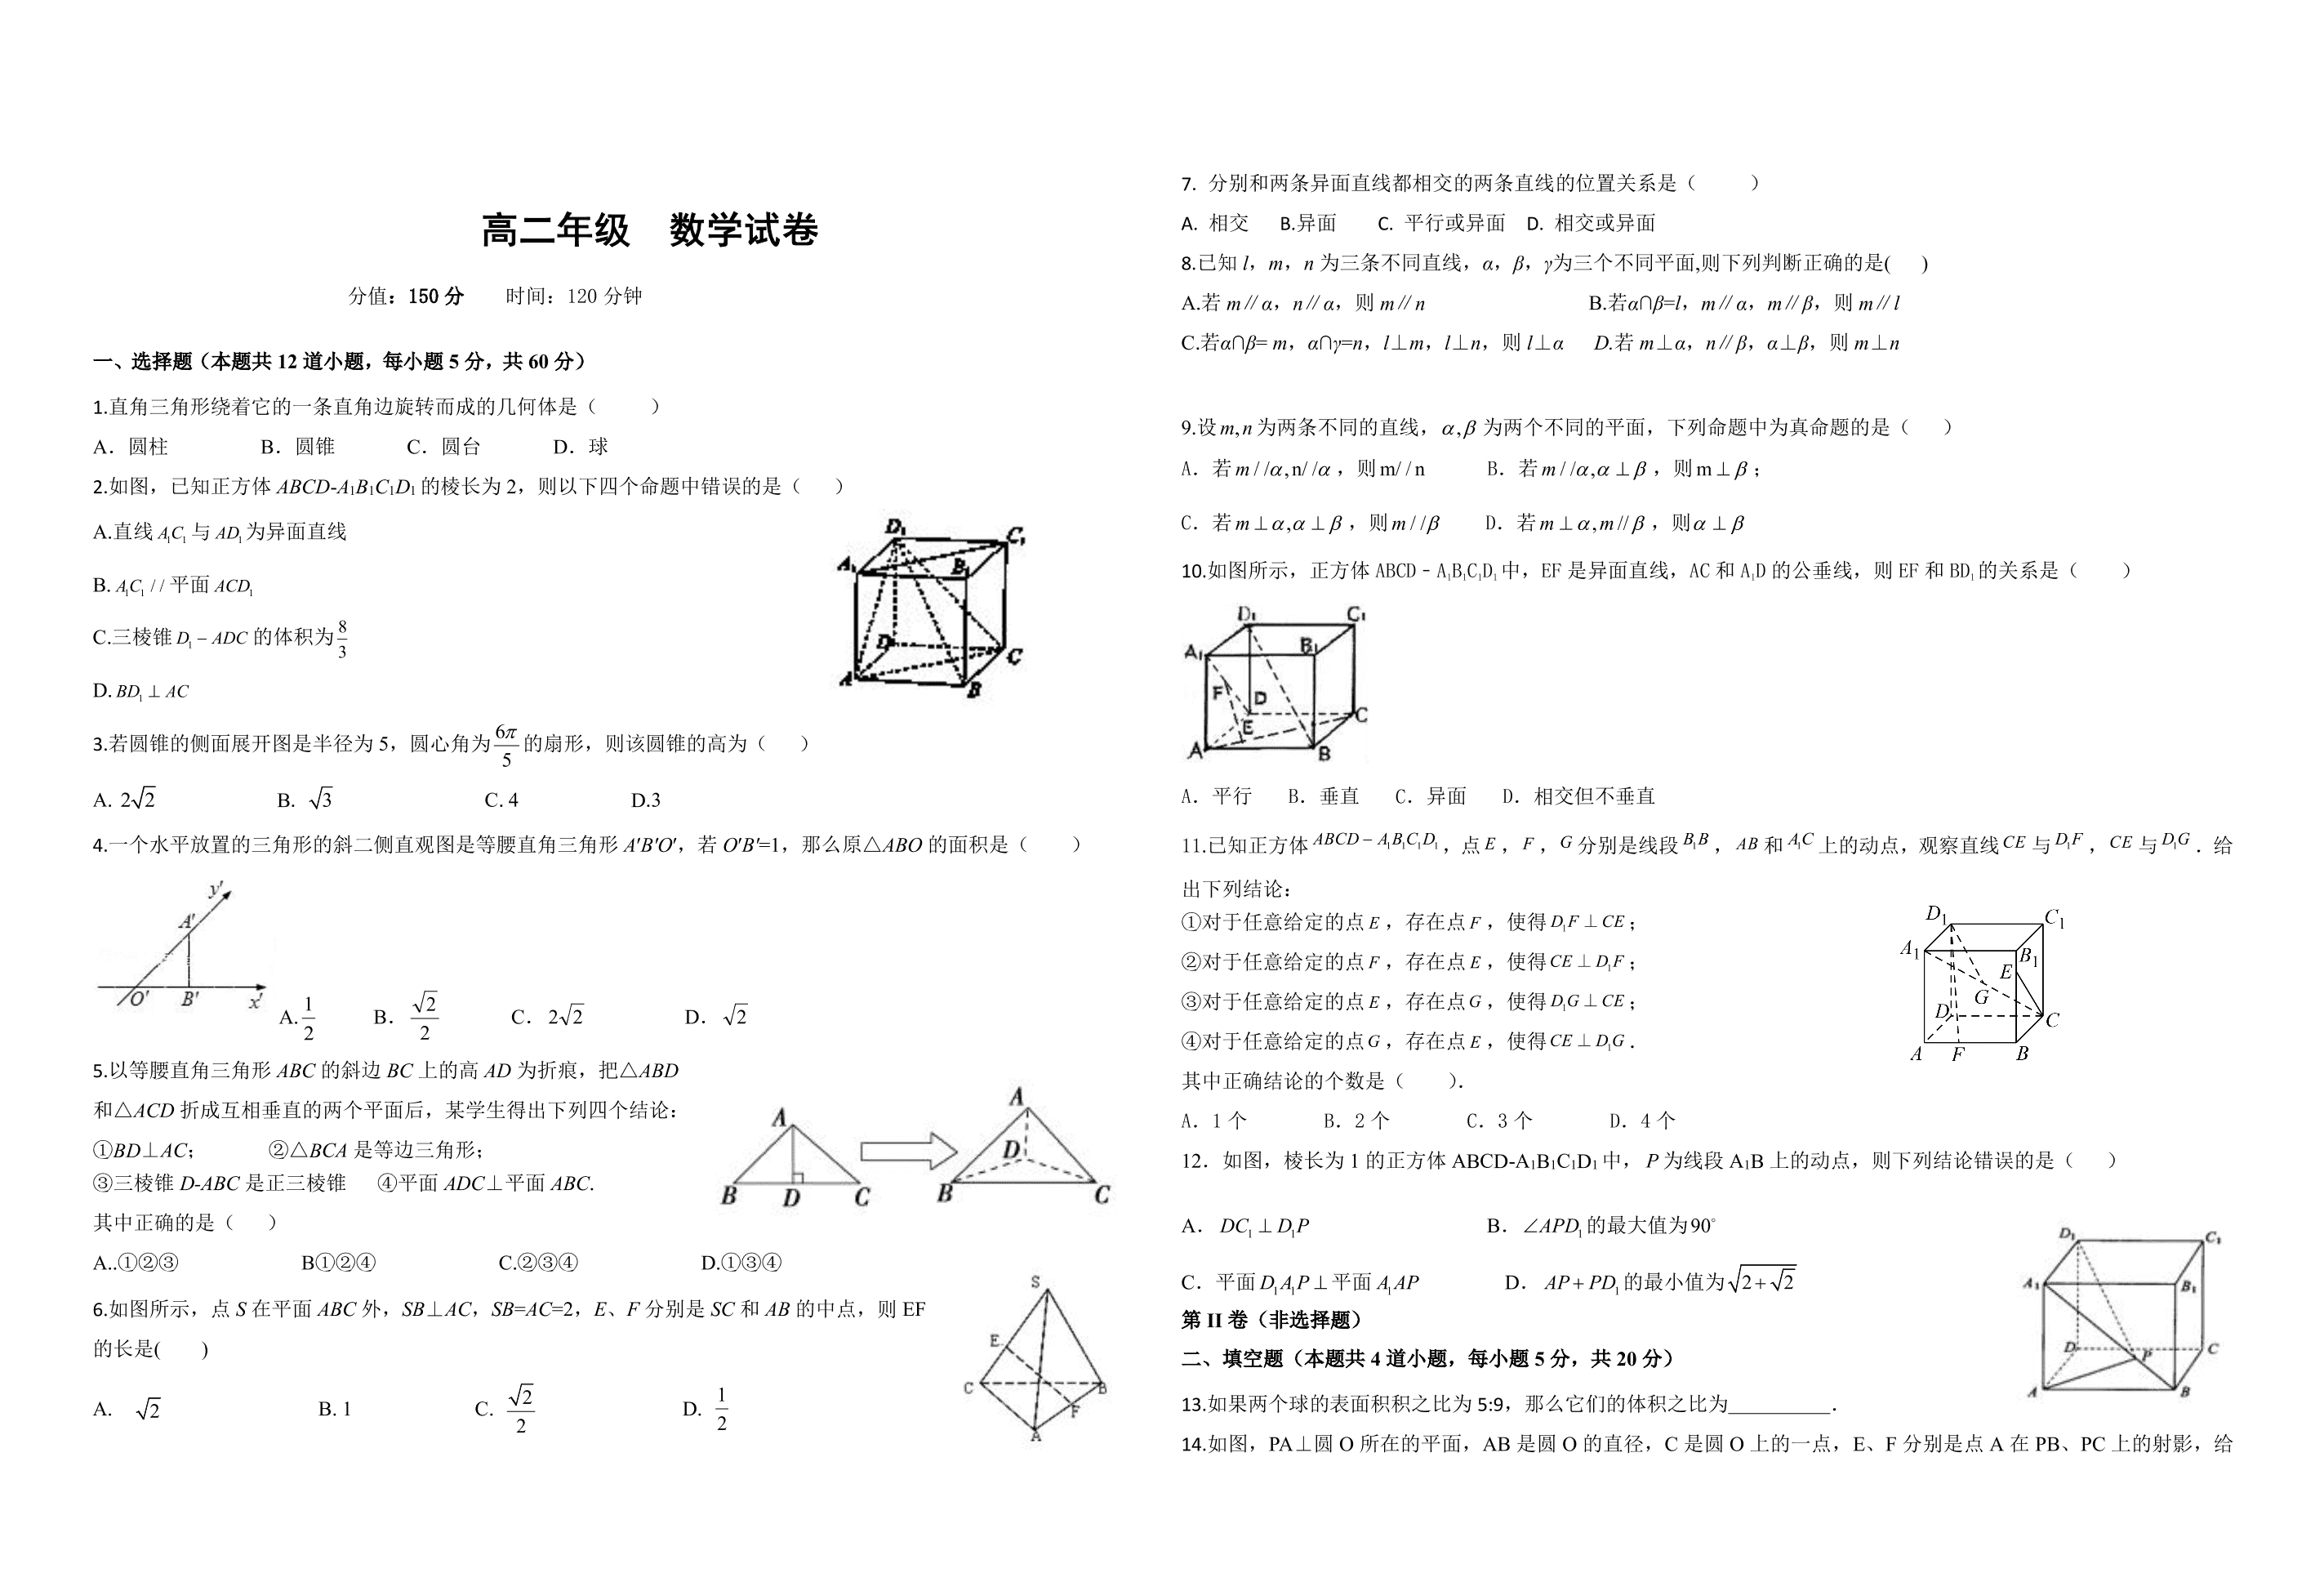 高二年级 数学试卷
分值：150分 时间：120分钟
一、选择题（本题共12道小题，每小题5分，共60分）
1.直角三角形绕着它的一条直角边旋转而成的几何体是（ ）
A．圆柱 B．圆锥 C．圆台 D．球
2.如图，已知正方体ABCD-A₁B₁C₁D₁的棱长为2，则以下四个命题中错误的是（ ）
A.直线A₁C₁与AD₁为异面直线
B. A₁C₁ // 平面ACD₁
C.三棱锥D₁ − ADC的体积为8/3
D. BD₁ ⊥ AC
D₁ C₁ A₁ B₁ D C A B
3.若圆锥的侧面展开图是半径为5，圆心角为6π/5的扇形，则该圆锥的高为（ ）
A. 2√2 B. √3 C. 4 D.3
4.一个水平放置的三角形的斜二侧直观图是等腰直角三角形A′B′O′，若O′B′=1，那么原△ABO的面积是（ ）
y′ A′ O′ B′ x′
A. 1/2 B．√2/2 C．2√2 D．√2
5.以等腰直角三角形ABC的斜边BC上的高AD为折痕，把△ABD
和△ACD折成互相垂直的两个平面后，某学生得出下列四个结论：
①BD⊥AC； ②△BCA是等边三角形；
③三棱锥D-ABC是正三棱锥 ④平面ADC⊥平面ABC.
其中正确的是（ ）
A..①②③ B①②④ C.②③④ D.①③④
A B D C A D B C
6.如图所示，点S在平面ABC外，SB⊥AC，SB=AC=2，E、F分别是SC和AB的中点，则EF
的长是( )
A. √2 B. 1 C. √2/2 D. 1/2
S E C B F A
7. 分别和两条异面直线都相交的两条直线的位置关系是（ ）
A. 相交 B.异面 C. 平行或异面 D. 相交或异面
8.已知l，m，n为三条不同直线，α，β，γ为三个不同平面,则下列判断正确的是( )
A.若m∥α，n∥α，则m∥n B.若α∩β=l，m∥α，m∥β，则m∥l
C.若α∩β= m，α∩γ=n，l⊥m，l⊥n，则l⊥α D.若m⊥α，n∥β，α⊥β，则m⊥n
9.设m,n为两条不同的直线，α,β为两个不同的平面，下列命题中为真命题的是（ ）
A．若m//α,n//α，则m//n B．若m//α,α⊥β，则m⊥β；
C．若m⊥α,α⊥β，则m//β D．若m⊥α,m//β，则α⊥β
10.如图所示，正方体ABCD﹣A₁B₁C₁D₁中，EF是异面直线，AC和A₁D的公垂线，则EF和BD₁的关系是（ ）
D₁ C₁ A₁ B₁ F D E C A B
A．平行 B．垂直 C．异面 D．相交但不垂直
11.已知正方体ABCD − A₁B₁C₁D₁，点E，F，G分别是线段B₁B，AB和A₁C上的动点，观察直线CE与D₁F，CE与D₁G．给
出下列结论：
①对于任意给定的点E，存在点F，使得D₁F ⊥ CE；
②对于任意给定的点F，存在点E，使得CE ⊥ D₁F；
③对于任意给定的点E，存在点G，使得D₁G ⊥ CE；
④对于任意给定的点G，存在点E，使得CE ⊥ D₁G．
其中正确结论的个数是（ ）．
A．1个 B．2个 C．3个 D．4个
D₁ C₁ A₁ B₁ E G D C A F B
12．如图，棱长为1的正方体ABCD-A₁B₁C₁D₁中，P为线段A₁B上的动点，则下列结论错误的是（ ）
A．DC₁ ⊥ D₁P B．∠APD₁的最大值为90°
C．平面D₁A₁P⊥平面A₁AP D．AP + PD₁的最小值为√(2+√2)
D₁ C₁ A₁ B₁ D C P A B
第II卷（非选择题）
二、填空题（本题共4道小题，每小题5分，共20分）
13.如果两个球的表面积积之比为5:9，那么它们的体积之比为__________．
14.如图，PA⊥圆O所在的平面，AB是圆O的直径，C是圆O上的一点，E、F分别是点A在PB、PC上的射影，给